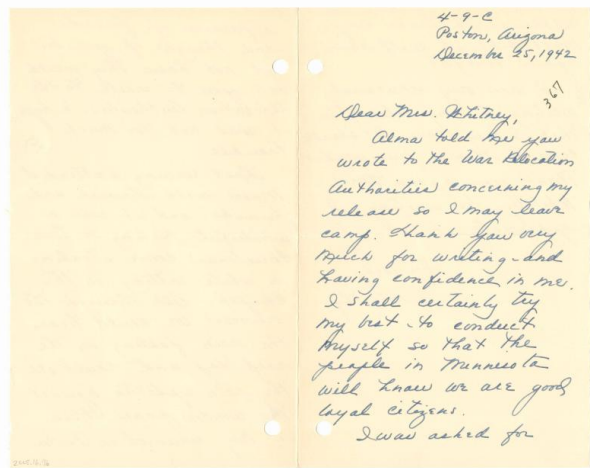 4-9-C
Poston, Arizona
December 25, 1942
367
Dear Mrs. Whitney,
Alma told me you
wrote to the War Relocation
Authorities concerning my
release so I may leave
camp. Thank you very
much for writing - and
having confidence in me.
I shall certainly try
my best - to conduct
myself so that the
people in Minnesota
will know we are good
loyal citizens.
I was asked for